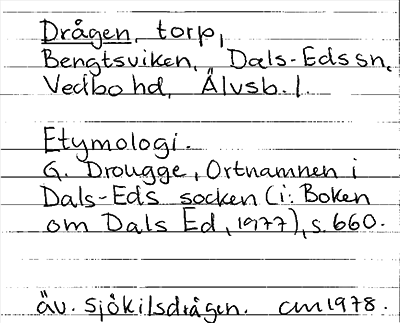 Drågen, torp,
Bengtsviken, Dals-Eds sn,
Vedbo hd, Älvsb. l.
Etymologi.
G. Drougge, Ortnamnen i
Dals-Eds socken (i: Boken
om Dals Ed, 1977), s. 660.
äv. Sjökilsdrågen. cm 1978.